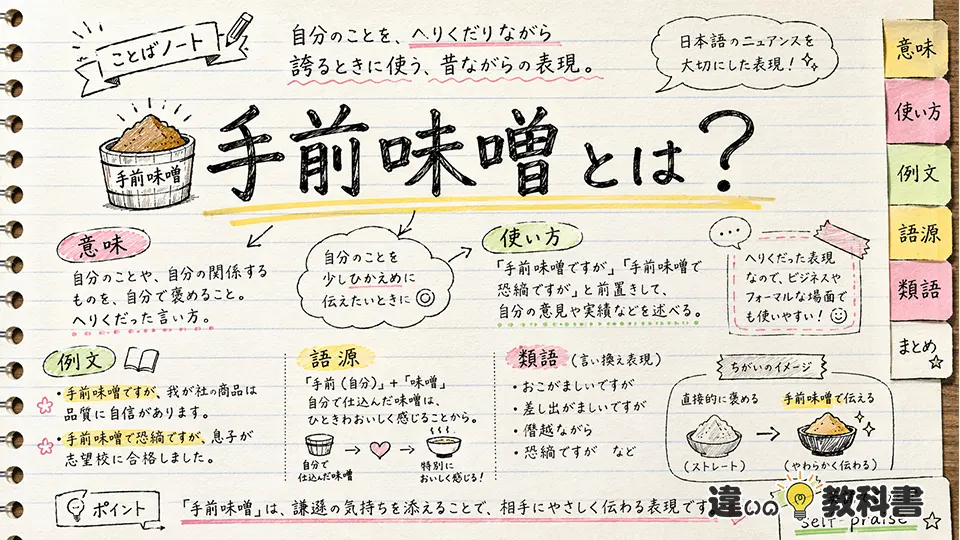 ことばノート
自分のことを、へりくだりながら
誇るときに使う、昔ながらの表現。
日本語のニュアンスを
大切にした表現！
意味
使い方
例文
語源
類語
まとめ
手前味噌
手前味噌とは？
意味
自分のことや、自分の関係する
ものを、自分で褒めること。
へりくだった言い方。
自分のことを
少しひかえめに
伝えたいときに◎
使い方
「手前味噌ですが」「手前味噌で
恐縮ですが」と前置きして、
自分の意見や実績などを述べる。
へりくだった表現
なので、ビジネスや
フォーマルな場面で
も使いやすい！
例文
・手前味噌ですが、我が社の商品は
品質に自信があります。
・手前味噌で恐縮ですが、息子が
志望校に合格しました。
語源
「手前（自分）」＋「味噌」
自分で仕込んだ味噌は、
ひときわおいしく感じることから。
自分で
仕込んだ味噌
特別に
おいしく感じる！
類語（言い換え表現）
・おこがましいですが
・差し出がましいですが
・僭越ながら
・恐縮ですが など
ちがいのイメージ
直接的に褒める
（ストレート）
手前味噌で伝える
（やわらかく伝わる）
ポイント
「手前味噌」は、謙遜の気持ちを添えることで、相手にやさしく伝わる表現です
違いの教科書
self-praise